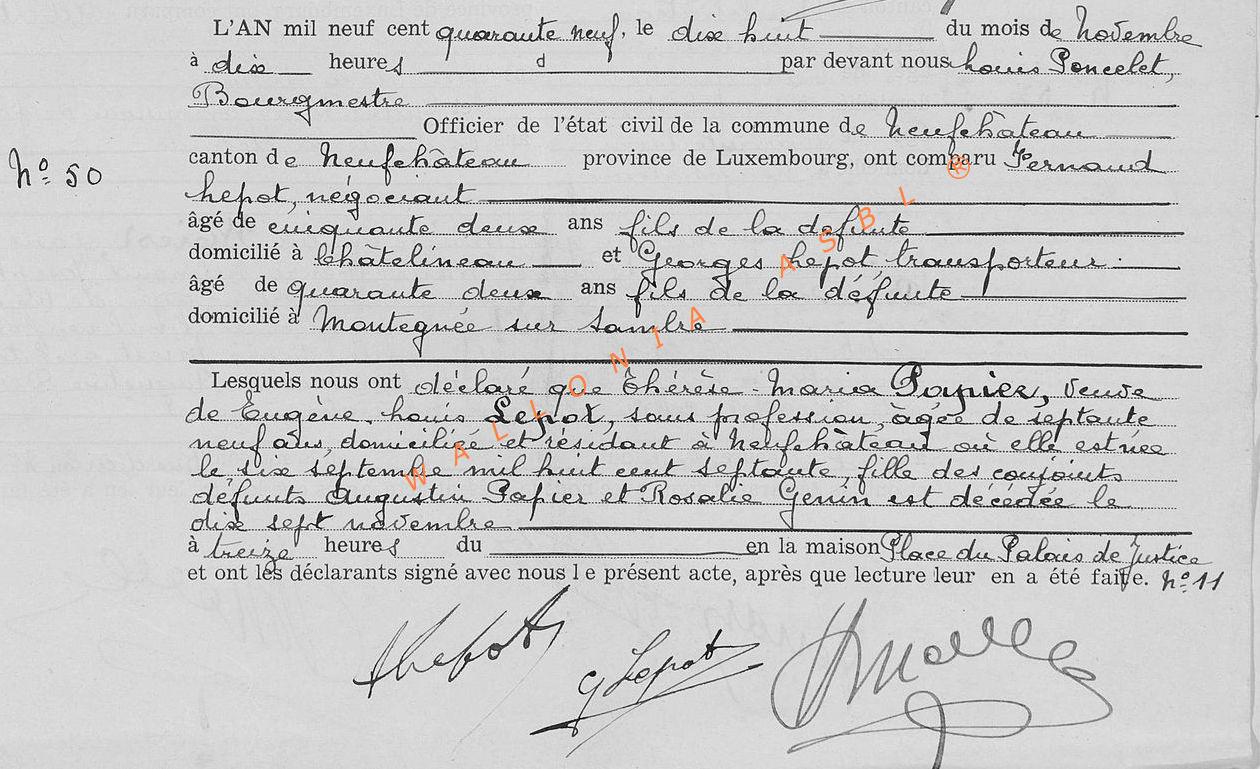 L'AN mil neuf cent quarante neuf, le dix huit du mois de Novembre
à dix heures d par devant nous Louis Poncelet,
Bourgmestre
Officier de l'état civil de la commune de Neufchâteau
canton de Neufchâteau province de Luxembourg, ont comparu Fernand
N° 50
Lepot, négociant
âgé de cinquante deux ans fils de la défunte
domicilié à Châtelineau et Georges Lepot transporteur
âgé de quarante deux ans fils de la défunte
domicilié à Montegnée sur Sambre
Lesquels nous ont déclaré que Thérèse Maria Papier, veuve
de Eugène Louis Lepot, sans profession, âgée de septante
neuf ans, domiciliée et résidant à Neufchâteau où elle est née
le six septembre mil huit cent septante fille des conjoints
défunts Augustin Papier et Rosalie Genin est décédée le
dix sept novembre
à treize heures du en la maison Place du Palais de Justice
et ont les déclarants signé avec nous le présent acte, après que lecture leur en a été faite. N° 11
Lepot
G Lepot
WALLONIA ASBL ®